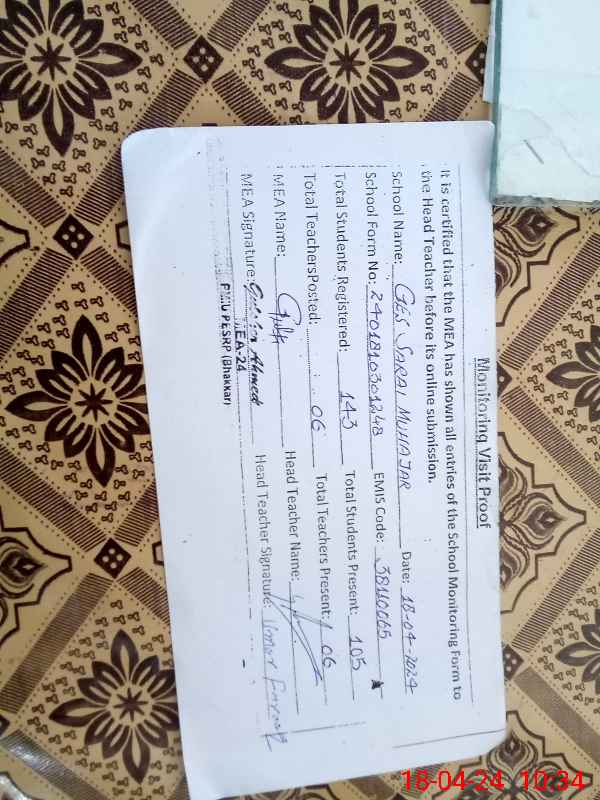 Monitoring Visit Proof
It is certified that the MEA has shown all entries of the School Monitoring Form to
the Head Teacher before its online submission.
School Name: GES SARAI MUHAJAR Date: 18-04-2024
School Form No: 2401810301248 EMIS Code: 38110065
Total Students Registered: 143 Total Students Present: 105
Total TeachersPosted: 06 Total Teachers Present: 06
MEA Name: Head Teacher Name:
MEA Signature: Ahmed Head Teacher Signature: Umar Farooq
MEA-24
PMIU PESRP (Bhakkar)
18-04-24 10:34